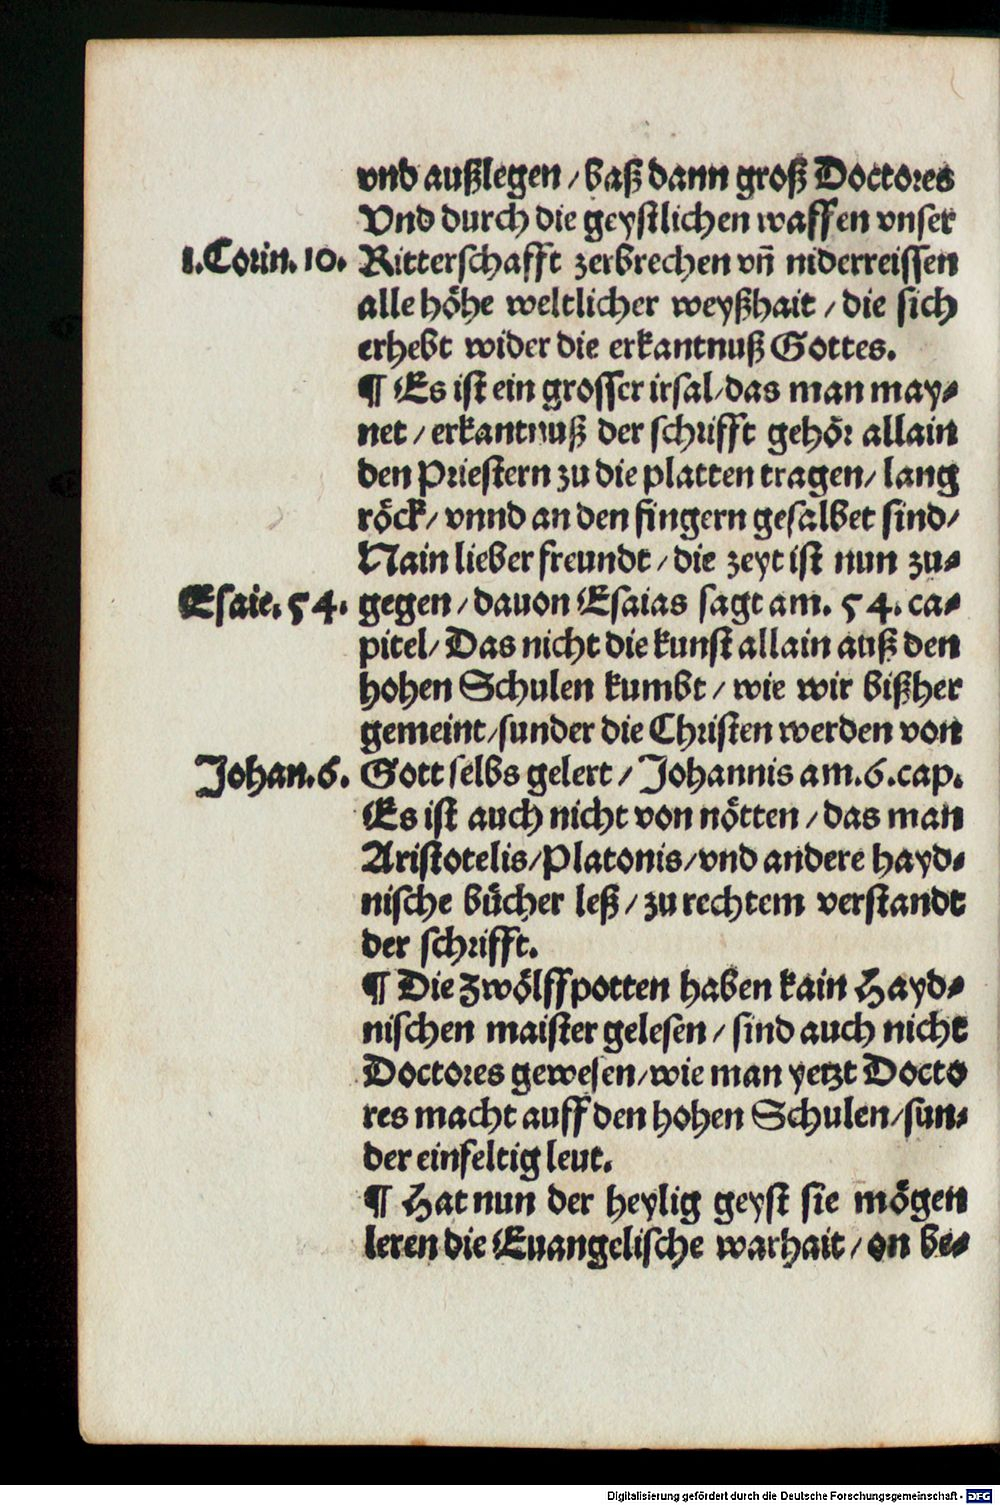 vnd außlegen / baß dann groß Doctores
Vnd durch die geystlichen waffen vnser
1. Corin. 10. Ritterschafft zerbrechen vñ niderreissen
alle höhe weltlicher weyßhait / die sich
erhebt wider die erkantnuß Gottes.
¶ Es ist ein grosser irsal / das man may⸗
net / erkantnuß der schrifft gehör allain
den Priestern zu die platten tragen / lang
röck / vnnd an den fingern gesalbet sind /
Nain lieber freundt / die zeyt ist nun zu⸗
Esaie. 54. gegen / dauon Esaias sagt am. 54. ca⸗
pitel / Das nicht die kunst allain auß den
hohen Schulen kumbt / wie wir bißher
gemeint / sunder die Christen werden von
Johan. 6. Gott selbs gelert / Johannis am. 6. cap.
Es ist auch nicht von nötten / das man
Aristotelis / Platonis / vnd andere hayd⸗
nische bücher leß / zu rechtem verstandt
der schrifft.
¶ Die zwölffpotten haben kain Hayd⸗
nischen maister gelesen / sind auch nicht
Doctores gewesen / wie man yetzt Docto
res macht auff den hohen Schulen / sun⸗
der einfeltig leut.
¶ Hat nun der heylig geyst sie mögen
leren die Euangelische warhait / on be⸗
Digitalisierung gefördert durch die Deutsche Forschungsgemeinschaft - DFG